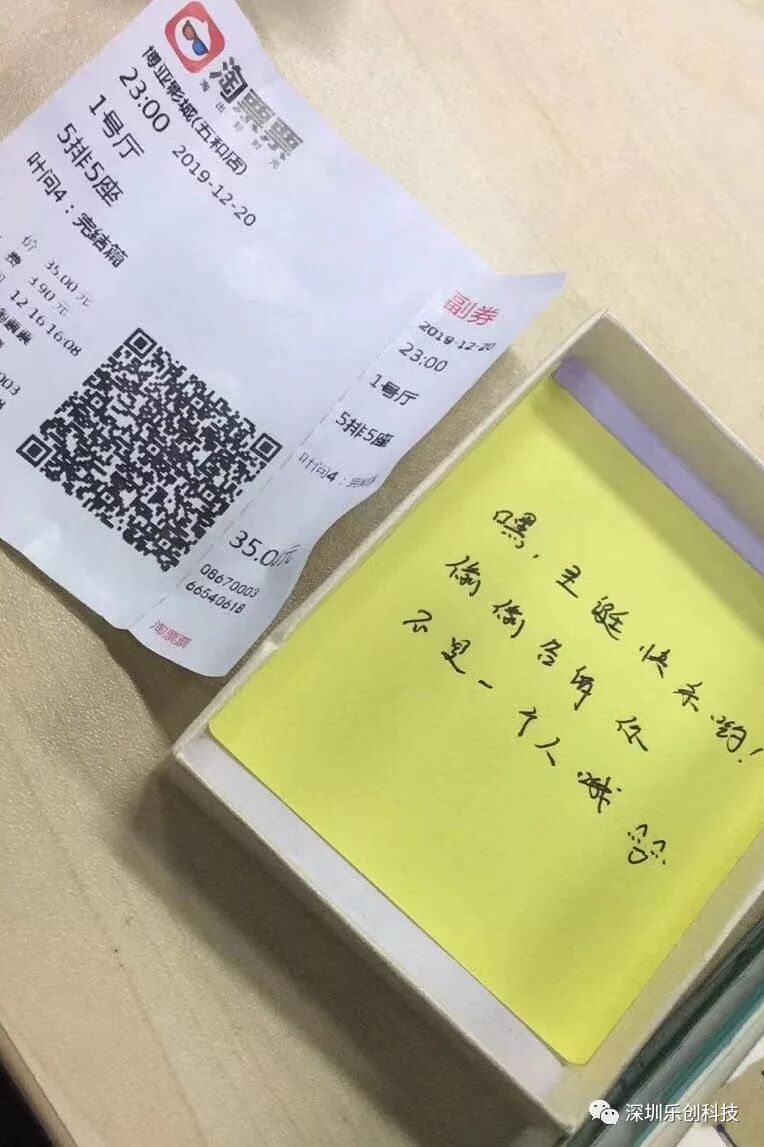 淘票票
淘出好时光
博亚影城(五和店)
23:00 2019-12-20
1号厅
5排5座
叶问4：完结篇
价 35.00元
费 3.90元
12 16 16:08
003
副券
2019-12-20
23:00
1号厅
5排5座
叶问4：完结
35.0元
08670003
66540618
淘票票
嘿，圣诞快乐哟！
偷偷告诉你
不是一个人哦
深圳乐创科技